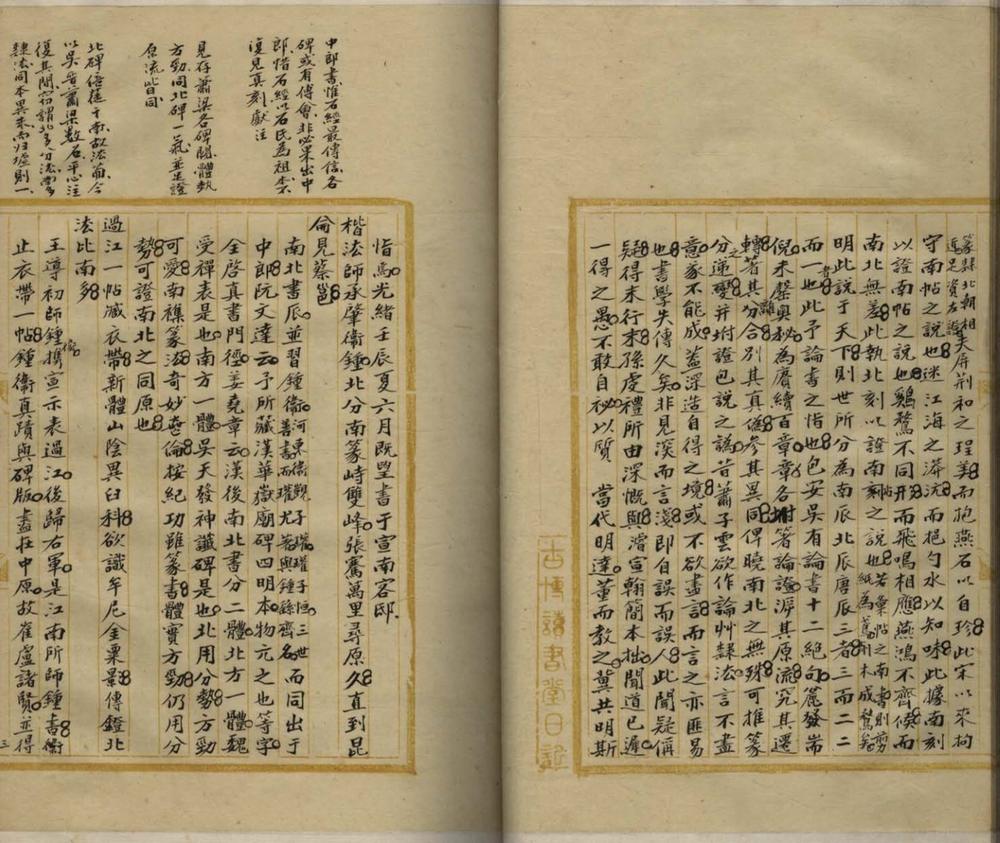 篆隸北朝相
近足資左證
天屏荆和之珵美而抱燕石以自珍此宋以來拘
守南帖之說也迷江海之漭沆而挹勺水以知味此據南刻
以證南帖之說也鷄鶩不同形而飛鳴相應燕鴻不齊候而
南北無差此執北刻以證南刻之說也若彙帖之南書則剪
紙為鳶刻木成鵞矣
明此說于天下則世所分為南辰北辰唐辰三者三而二二
而一也此予論書之恉也包安吳有論書十二絕句麄發耑
倪未罄奥秘為賡續百章章各坿箸論證泝其原流究其遷
轉著其分合別其真僞參其異同俾曉南北之無殊可推篆
分之遞變并坿證包說之譌昔蕭子雲欲作論艸隸法言不盡
意遂不能成蓋深造自得之境或不欲盡言而言之亦匪易
也書學失傳久矣非見淡而言淺即自誤而誤人此聞疑偁
疑得末行末孫虔禮所由深慨與濬宣翰簡本拙聞道已遲
一得之愚不敢自祕以質 當代明達董而教之冀共明斯
古博議書堂日誌
中郎書惟石經最傳信各
碑或有傅會非必果出中
郎惜石經以石氏為祖本不
復見真刻獻注
見存蕭梁各碑閒體埶
方勁同北碑一氣並足證
原流皆同
北碑倍蓰于南故法葡今
以吳晉蕭梁數石平心注
復其閒
隸法同本異末而归墟則一
恉焉光緒壬辰夏六月既朢書于宣南客邸
楷法師承肇衛鍾北分南篆峙雙峰張騫萬里尋原久直到昆
侖見蔡邕
南北書辰並習鍾衛河東衛覬子瓘瓘子恒三世
善書而瓘尤著與鍾繇齊名而同出于
中郎阮文達云予所藏漢華嶽廟碑四明本物元之也等字
全啓真書門徑姜堯章云漢後南北書分二體北方一體魏
受禪表是也南方一體吳天發神讖碑是也北用分勢方勁
可愛南襍篆法奇妙
倫按紀功雖篆書體實方勁仍用分
勢可證南北之同原也
過江一帖減衣帶新體山陰異臼科欲識牟尼金粟景傳鐙北
法比南多
王導初師鍾衛攜宣示表過江後歸右軍是江南所師鍾書衛
止衣帶一帖鍾衛真蹟與碑版盡在中原故崔盧諸賢並得
三